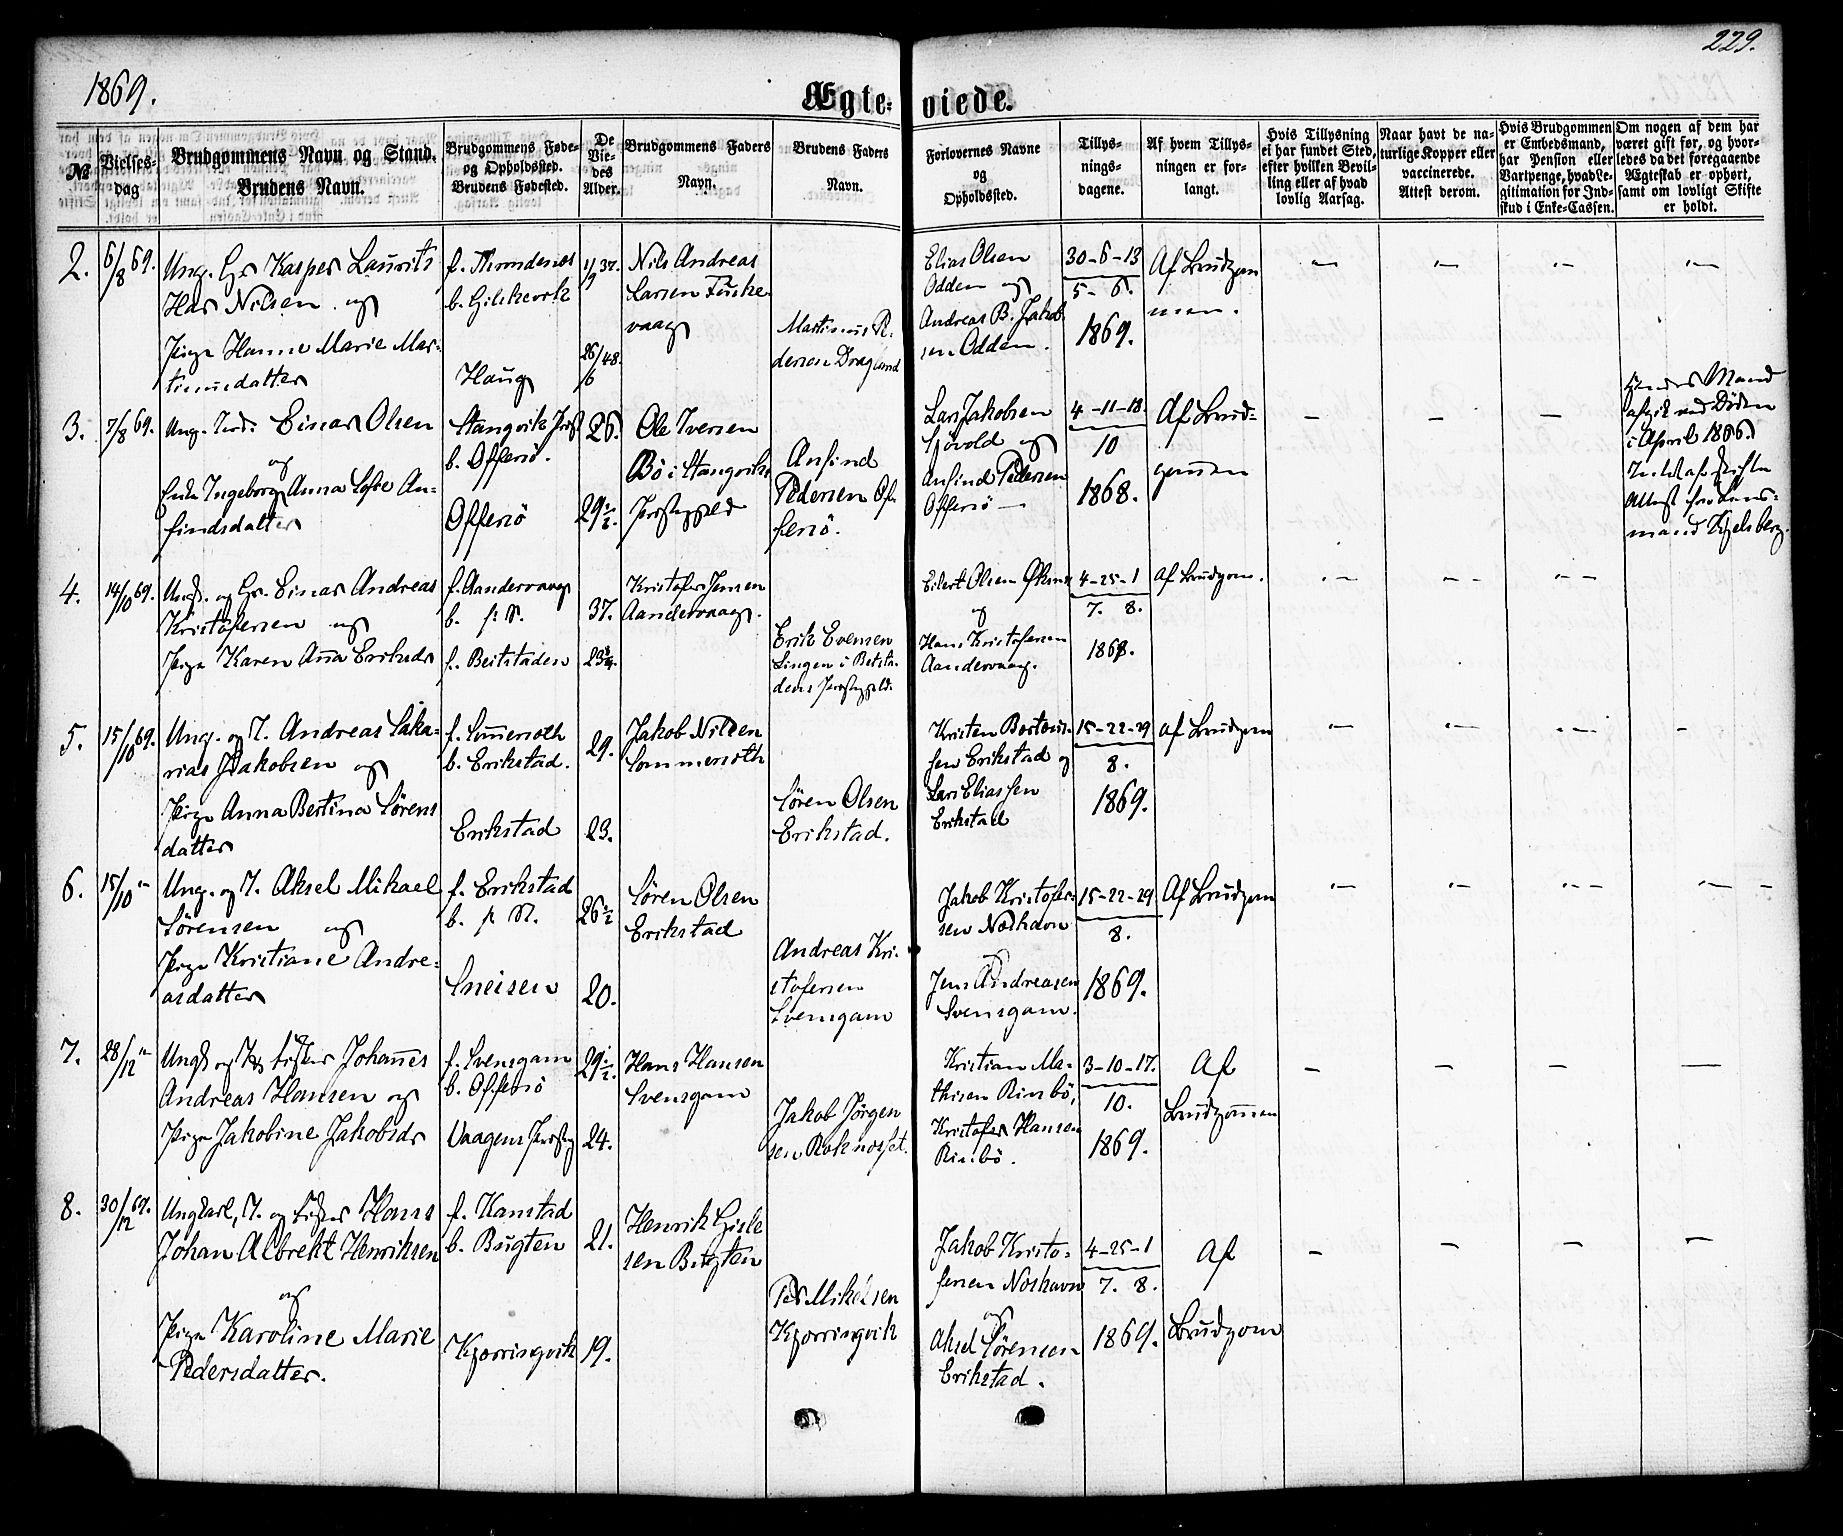 229.
1869.
Ægte- viede.
№
Vielses-
dag
Brudgommens Navn og Stand.
Brudens Navn.
Brudgommens Føde-
og Opholdssted.
Brudens Fødested.
De
Vie-
des
Alder.
Brudgommens Faders
Navn.
Brudens Faders
Navn.
Forlovernes Navne
og
Opholdssted.
Tillys-
nings-
dagene.
Af hvem Tillys-
ningen er for-
langt.
Hvis Tillysning
ei har fundet Sted,
efter hvilken Bevil-
ling eller af hvad
lovlig Aarsag.
Naar havt de na-
turlige Kopper eller
vaccinerede.
Attest derom.
Hvis Brudgommen
er Embedsmand,
har Pension eller
Vartpenge, hvad Le-
gitimation for Ind-
skud i Enke-Cassen.
Om nogen af dem har
været gift før, og hvor-
ledes da det foregaaende
Ægteskab er ophørt,
samt om lovligt Skifte
er holdt.
2.
6/8 69.
Ung. Gr Kasper Laurits
Nilsen og
Pige Hanne Marie Mar-
tinusdatter
f. Throndenæs
b.
Haug
1/9 37.
26/6 48.
Nils Andreas
Larsen Fuske-
vaag
Martinus P.
dersen Dragland
Elias Olsen
Odden og
Andreas B. Jakob
sen Odden.
30-6-13
5- 6.
1869.
Af Brudgom
men.
3.
7/8 69.
Ung. Inds. Einar Olsen
og
Enke Ingeborg Anna Sofie An-
findsdatter
Stangvik
b. Offersö.
Offersö
26.
29 1/2.
Ole Iversen
Bö i Stangviks
Præstegjeld
Anfind
Pedersen Of-
fersö.
Lars Jakobsen
Sjövold og
Anfind Pedersen
Offersö
4-11-18.
10
1868.
Af Brud-
gommen
Hendes Mand
afgik ved Döden
i April 1866.
Attest fra Lens-
mand Kjelsberg.
4.
14/10 69.
Ungk. og Gr. Einar Andreas
Kristofersen og
Pige Karen Anna Eriksdr
f. Aandervaag
b. p. St.
f. Beitstaden
37.
23 3/4.
Kristofer Jensen
Aandervaag.
Erik Evensen
Lingen i Betsta-
dens Præstegjeld.
Eilert Olsen
og
Hans Kristofersen
Aandervaag.
4-25-1
7. 8.
1869.
Af Brudgom.
5.
15/10 69.
Ung. og I. Andreas Saka-
rias Jakobsen og
Pige Anna Bertina Sörens
datter
f. Sommerseth
b. Erikstad.
Erikstad
29.
23.
Jakob Nilsen
Sommerseth
Sören Olsen
Erikstad.
Kristen Berteus-
sen Erikstad og
Lars Eliassen
Erikstad
15-22-29
8.
1869.
af Brudgom
6.
15/10 "
Ung. og I. Aksel Mikael
Sörensen og
Pige Kristiane Andre-
asdatter
f. Erikstad
b. p. St.
Sneisen
26 1/2
20.
Sören Olsen
Erikstad
Andreas Kri-
stofersen
Svensgam
Jakob Kristofer-
sen Næshavn
og
Jens Andreasen
Svensgam.
15-22-29
8.
1869.
Af Brudgom
7.
28/12 "
Ungk og Fisker Johannes
Andreas Hansen og
Pige Jakobine Jakobsdr
f. Svensgam
b. Offersö
Vaagens
29 1/2.
24.
Hans Hansen
Svensgam
Jakob Jörgen
sen
Kristian Ma-
thisen Rinbö,
Kristofer Hansen
Rinbö.
3-10-17.
10.
1869.
Af
Brudgommen
8.
30/12 69.
Ungkarl, I. og Fisker Hans
Johan Albrekt Henriksen
og
Pige Karoline Marie
Pedersdatter.
f. Kanstad
b. Bugten
Kjorringvik
21.
19.
Henrik Gisle
sen Bugten
Peder Mikelsen
Kjorringvik
Jakob Kristo-
fersen Næshavn
og
Aksel Sörensen
Erikstad.
4-25-1
7. 8.
1869.
Af
Brudgom